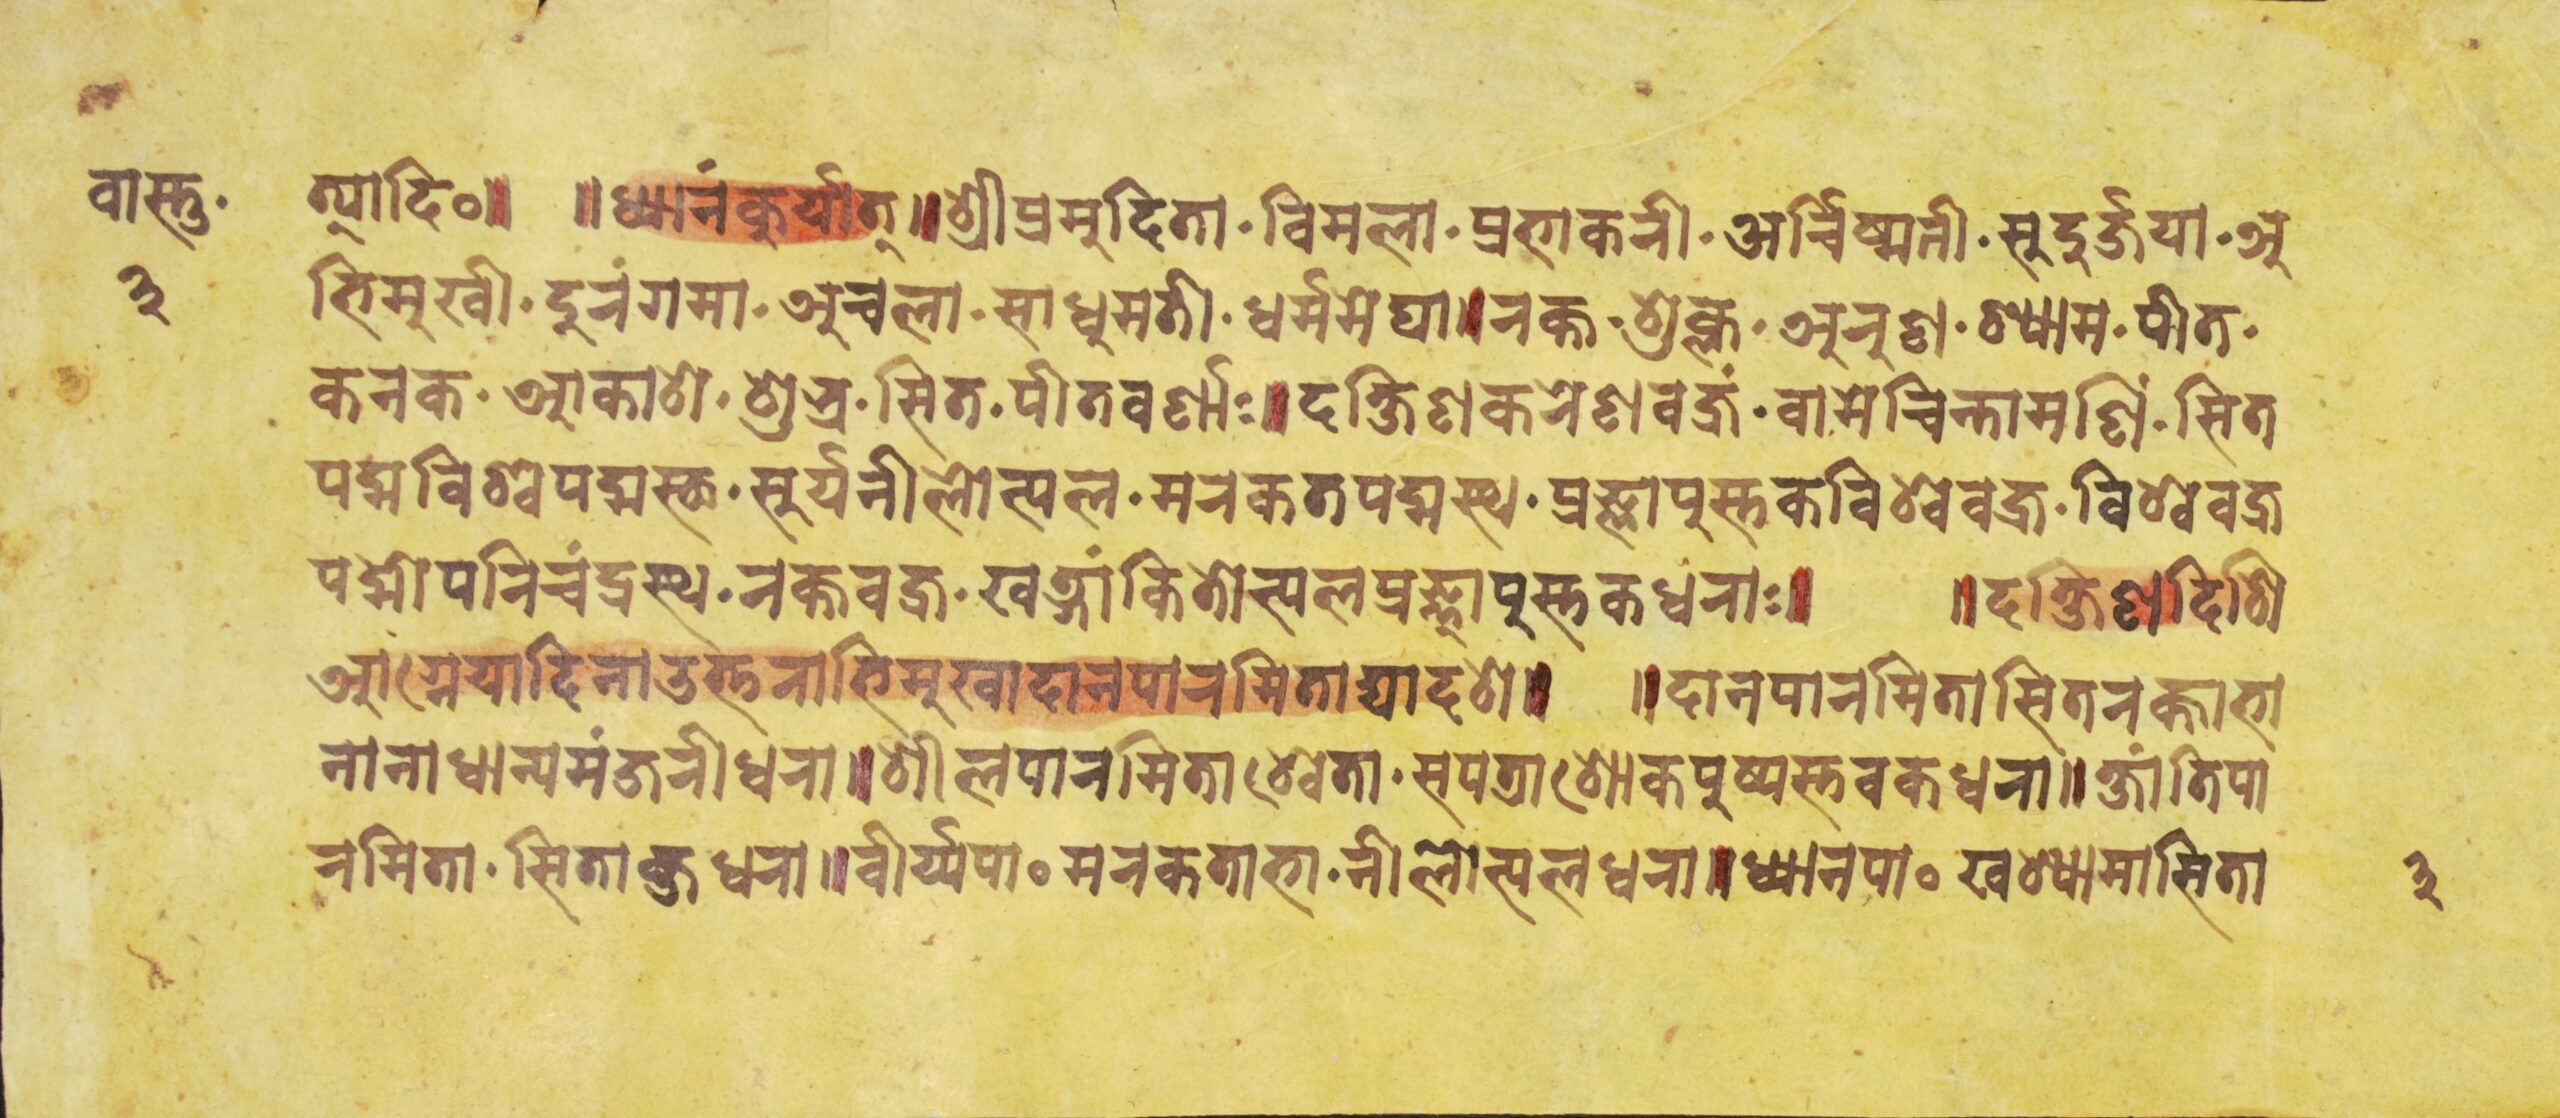 वास्तु· त्यादि०॥ ॥ध्यानंकुर्यात्॥श्रीप्रमुदिता·विमला·प्रभाकरी·अर्चिष्मती·सुदुर्जया·अ
३ भिमुखी·दुरंगमा·अचला·साधुमती·धर्ममेघा॥रक्त·शुक्ल·अरुण·श्याम·पीत·
कनक·आकाश·शुभ्र·सित·पीतवर्णाः॥दक्षिणकरेणवज्रं·वामेचिन्तामणिं·सित
पद्मविश्वपद्मस्थ·सुर्यनीलोत्पल·मरकतपद्मस्थ·प्रज्ञापुस्तकविश्ववज्र·विश्ववज्र
पद्मोपरिचंद्रस्थ·रक्तवज्र·खड्गांकितोत्पलप्रज्ञापुस्तकधराः॥ ॥दक्षिणदिशि
आग्नेयादिनाउत्तराभिमुखादानपारमिताद्यादश॥ ॥दानपारमितासितरक्ताभा
नानाधान्यमंजरीधरा॥शीलपारमिताश्वेता·सपत्राशोकपुष्पस्तवकधरा॥क्षांतिपा
रमिता·सिताब्जधरा॥वीर्य्यपा०मरकताभा·नीलोत्पलधरा॥ध्यानपा०खश्यामासिता ३